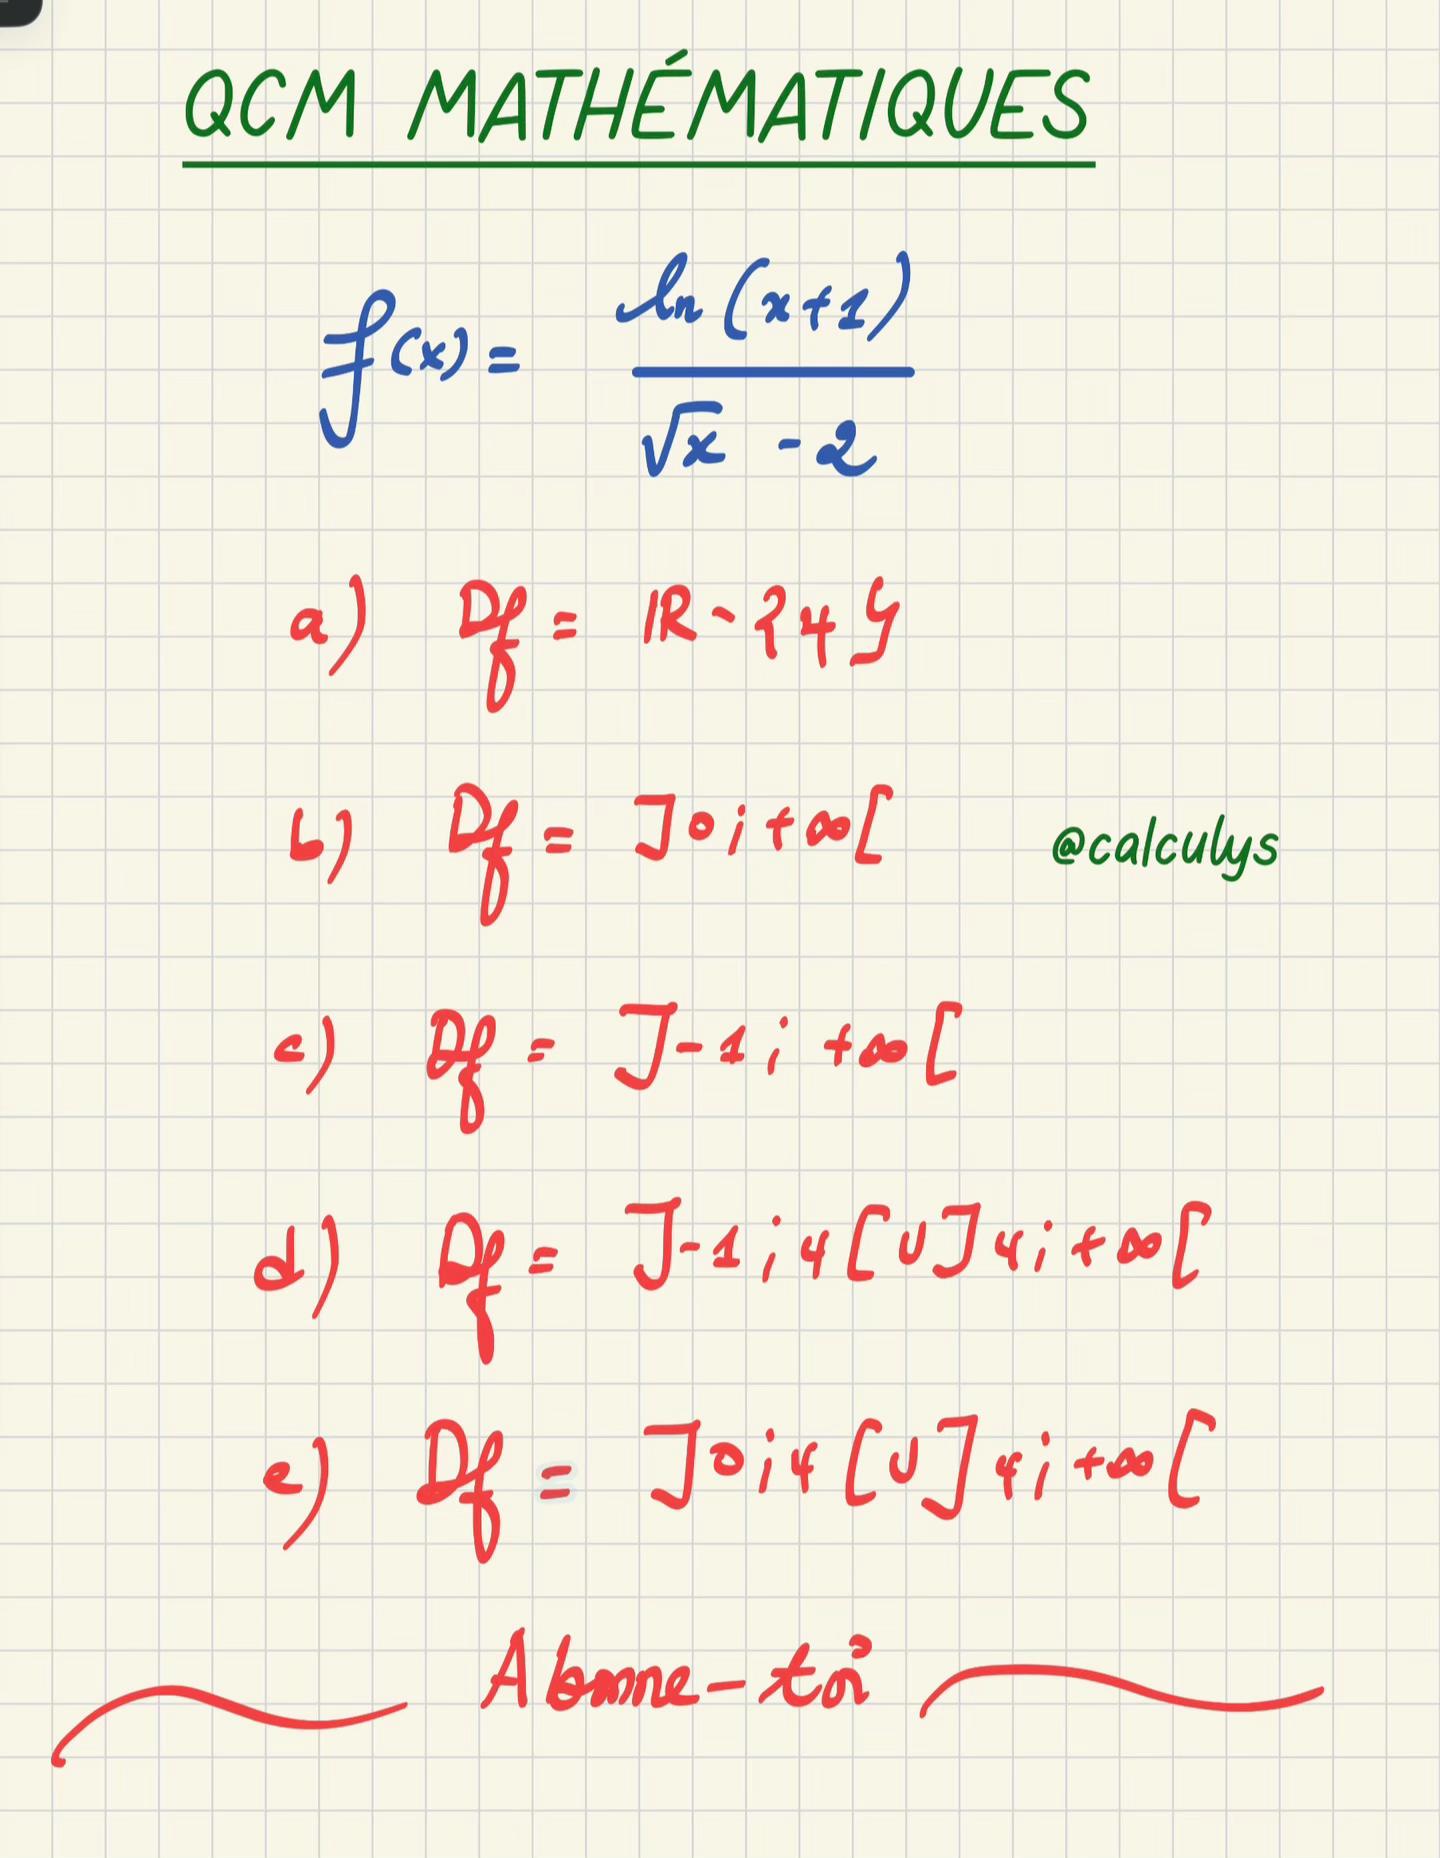 QCM MATHÉMATIQUES
f(x) = ln(x+1) / √x - 2
a) Df = IR - {4}
b) Df = ]0; +∞[
@calculys
c) Df = ]-1; +∞[
d) Df = ]-1; 4[ U ]4; +∞[
e) Df = ]0; 4[ U ]4; +∞[
Abonne-toi